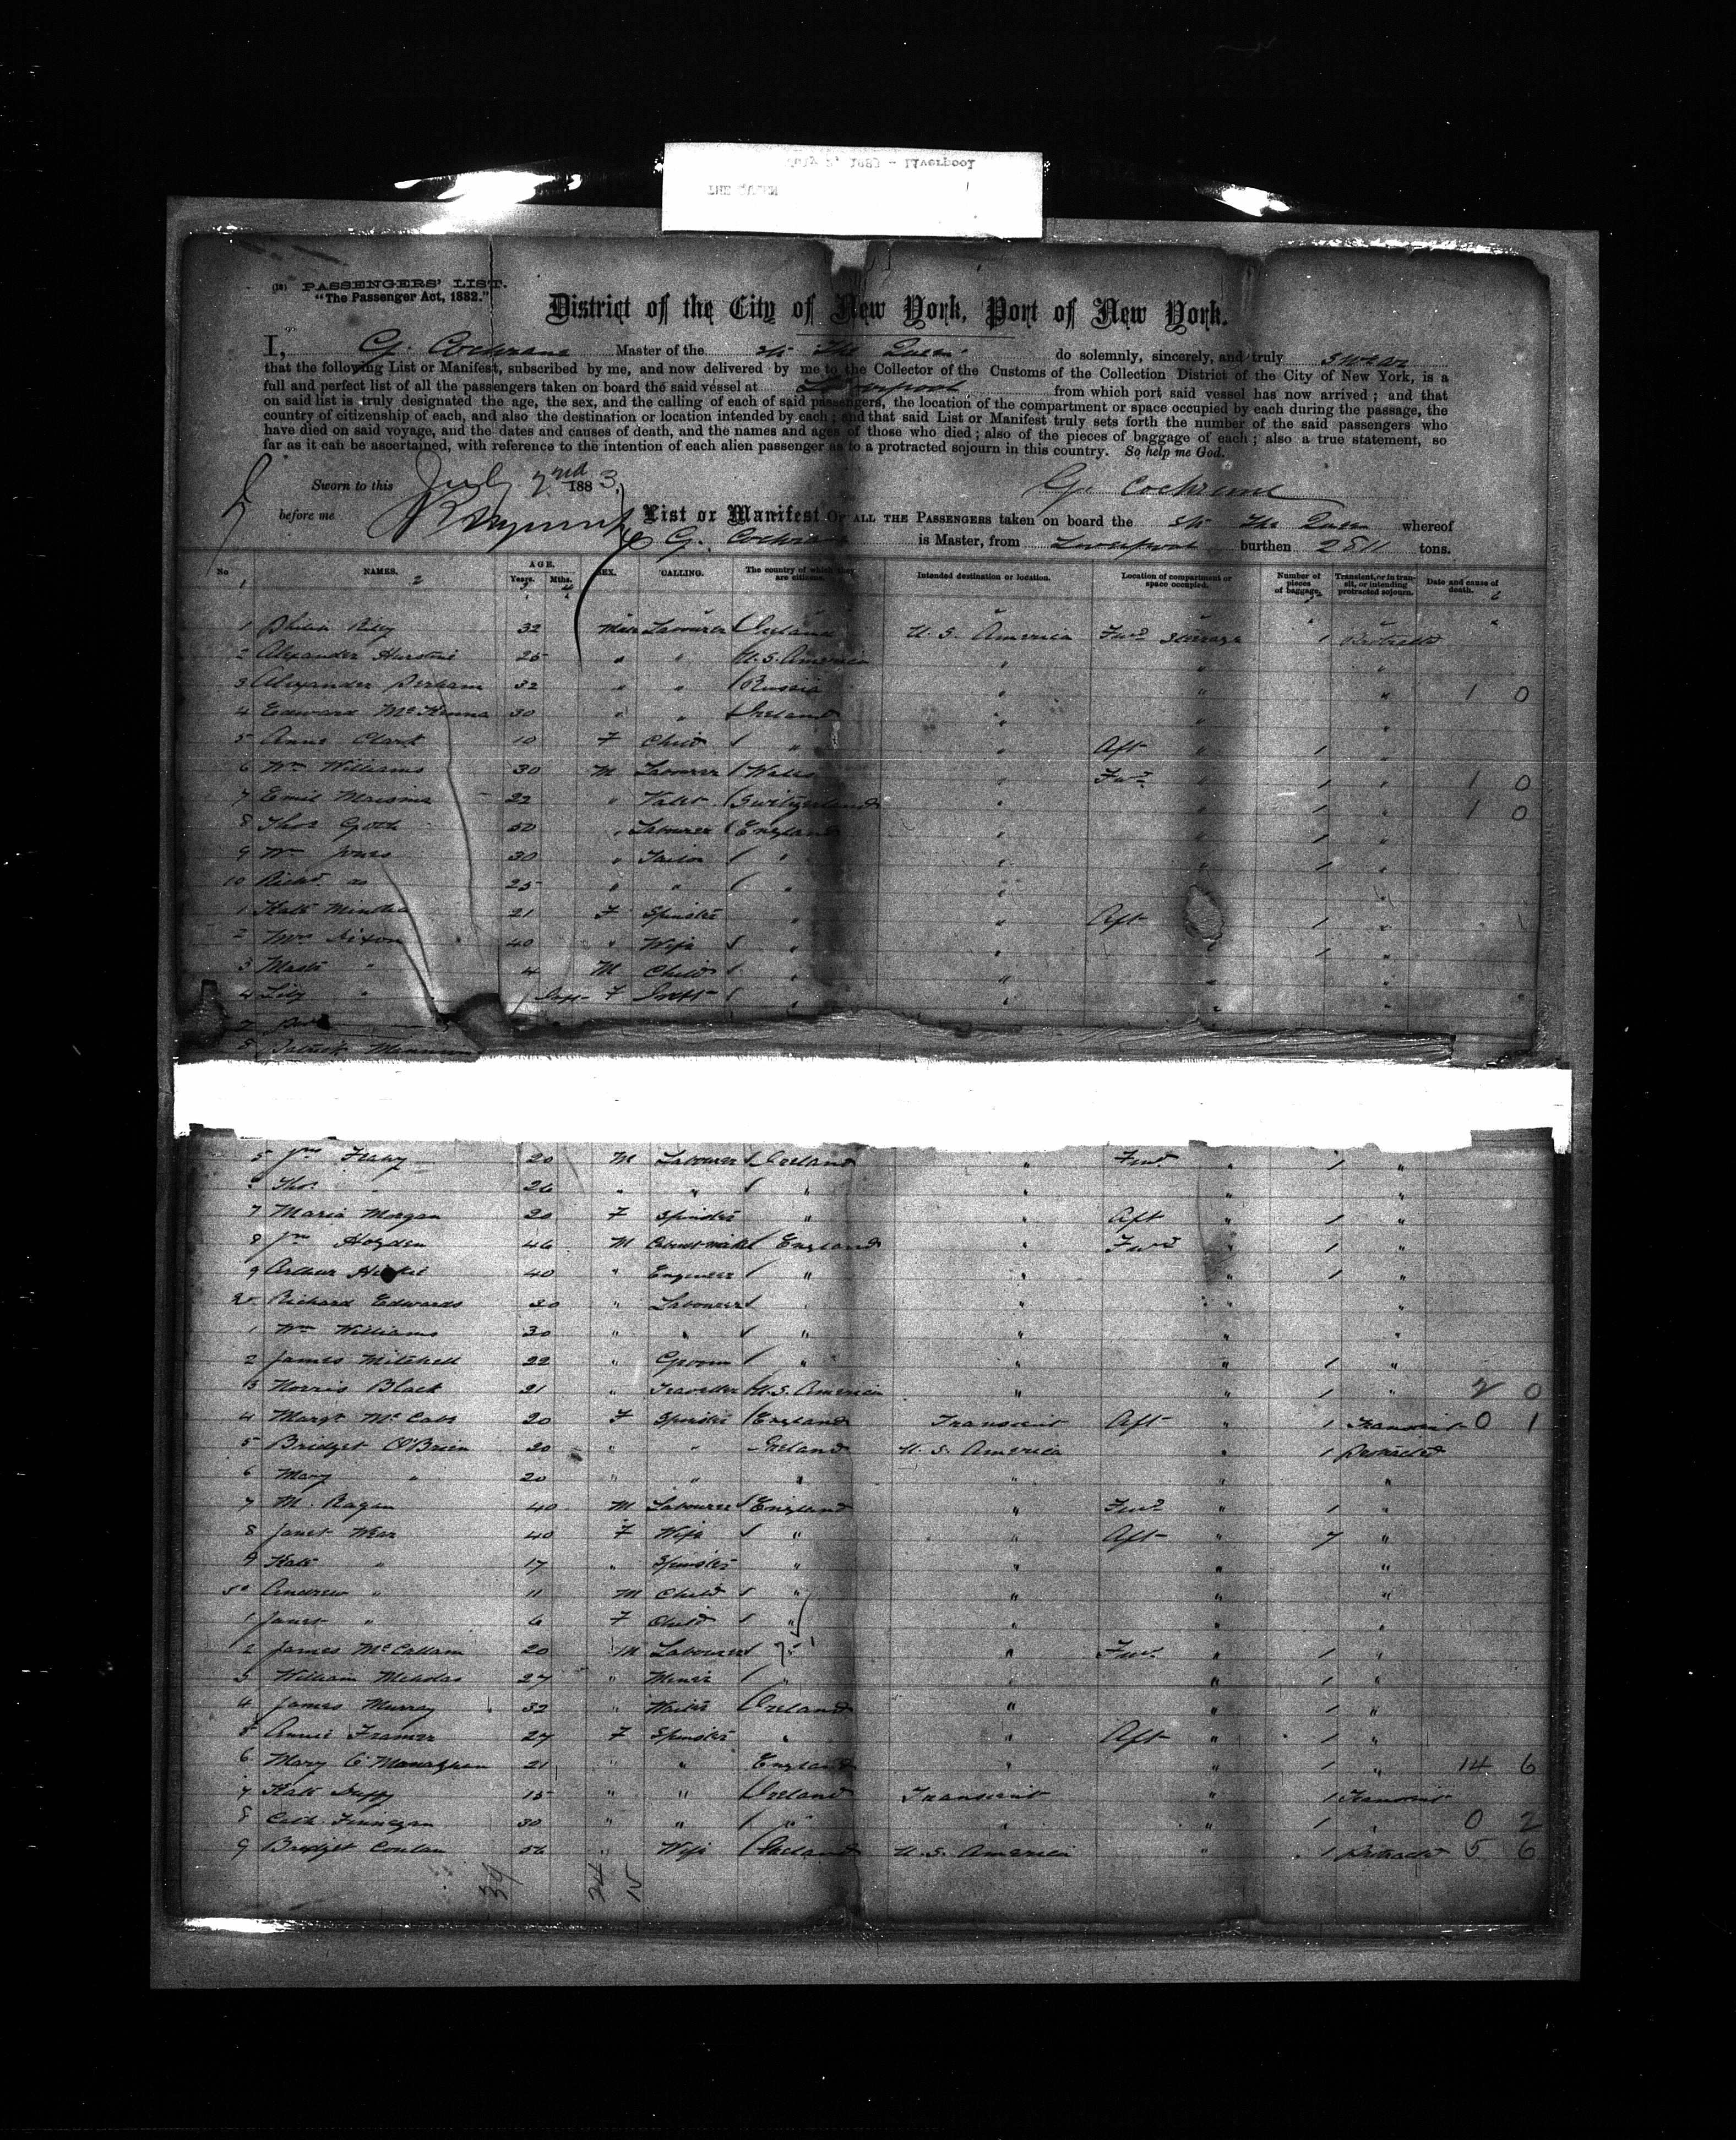 (18) PASSENGERS' LIST.
"The Passenger Act, 1882."
District of the City of New York, Port of New York.
I, G. Cochrane Master of the The Queen do solemnly, sincerely, and truly swear
that the following List or Manifest, subscribed by me, and now delivered by me to the Collector of the Customs of the Collection District of the City of New York, is a
full and perfect list of all the passengers taken on board the said vessel at Liverpool from which port said vessel has now arrived; and that
on said list is truly designated the age, the sex, and the calling of each of said passengers, the location of the compartment or space occupied by each during the passage, the
country of citizenship of each, and also the destination or location intended by each; and that said List or Manifest truly sets forth the number of the said passengers who
have died on said voyage, and the dates and causes of death, and the names and ages of those who died; also of the pieces of baggage of each; also a true statement, so
far as it can be ascertained, with reference to the intention of each alien passenger as to a protracted sojourn in this country. So help me God.
Sworn to this July 2nd 1883 G. Cochrane
before me List or Manifest OF ALL THE PASSENGERS taken on board the The Queen whereof
G. Cochrane is Master, from Liverpool burthen tons.
No NAMES. AGE. Years. Mths. SEX. CALLING. The country of which they are citizens. Intended destination or location. Location of compartment or space occupied. Number of pieces of baggage. Transient, or in transit, or intending protracted sojourn. Date and cause of death.
1 Philip Riley 32 Labourer Ireland U. S. America Fwd Steerage 1
2 Alexander 25 " " U. S. America " " "
3 Alexander 32 " " Russia " " " 1 0
4 Edward McKenna 30 " " Ireland " " "
5 Anne Clark 10 F Child " " Aft " 1 "
6 Wm Williams 30 M Labourer Wales " Fwd " 1 " 1 0
7 Emil 22 " Valet Switzerland " " 1 " 1 0
8 Thos 50 " Labourer England " " 1 "
9 Wm Jones 30 " Tailor " " " 1 "
10 Richd do 25 " " " " "
1 Kate 21 F Spinster " " Aft 1 "
2 Mrs Dixon 40 " Wife " " " 1 "
3 " 4 M Child " " " "
4 Lily " Inft F Inft " " " "
8 Patrick
5 Jno 20 M Labourer Ireland " Fwd " 1 "
6 Thos " 26 " " " " " "
7 Maria Morgan 20 F Spinster " " Aft " 1 "
8 Jno 46 M England " Fwd " 1 "
9 Arthur 40 " Engineer " " " 1 "
20 Richard Edwards 30 " Labourer " " " "
1 Wm Williams 30 " " " " " "
2 James Mitchell 22 " Groom " " " 1 "
3 Black 21 " Traveller U. S. America " " 1 " 2 0
4 Margt McCabe 20 F Spinster England Transient Aft " 1 Transient 0 1
5 Bridget O'Brien 20 " " Ireland U. S. America " 1 Protracted
6 Mary " 20 " " " " " "
7 M. Ragan 40 M Labourer England " Fwd " 1 "
8 Janet Wear 40 F Wife " " Aft " 7 "
9 Kate " 17 " Spinster " " " "
50 Andrew " 11 M Child " " " "
1 Janet " 6 F Child " " " "
2 James McCallam 20 M Labourer " " Fwd " 1 "
3 William 27 " Miner " " " 1 "
4 James Murray 32 " Waiter Ireland " " 1 "
5 Annie 27 F Spinster " " Aft " 1 "
6 Mary 21 " " England " " 1 " 14 6
7 Kate Duffy 15 " " Ireland Transient " 1 Transient
8 Cath Finnegan 30 " " " " " 1 " 0 2
9 Bridget Conlan 56 " Wife Ireland U. S. America " 1 5 6
39 24 15